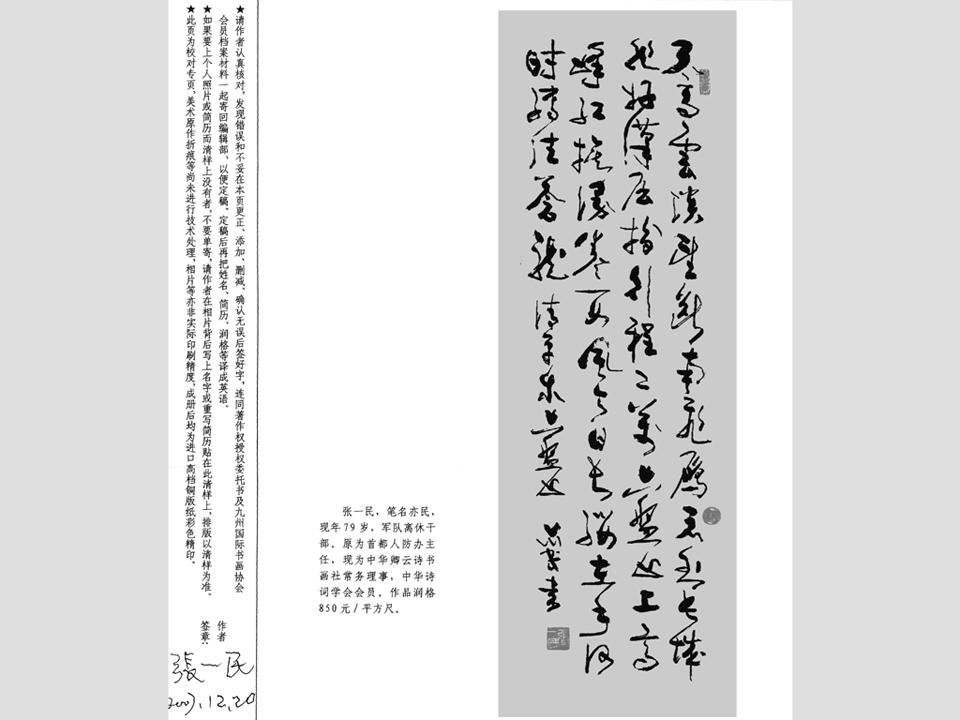 ★请作者认真核对,发现错误和不妥在本页更正、添加、删减、确认无误后签好字,连同著作权授权委托书及九州国际书画协会
会员档案材料一起寄回编辑部,以便定稿、定稿后再把姓名、简历、润格等译成英语。
★如果要上个人照片或简历而清样上没有者,不要单寄,请作者在相片背后写上名字或重写简历贴在此清样上,排版以清样为准。
★此页为校对专页,美术原作折痕等尚未进行技术处理,相片等亦非实际印刷精度,成册后均为进口高档铜版纸彩色精印。
作者
签章:
張一民
2007.12.20
张一民,笔名亦民,
现年79岁,军队离休干
部。原为首都人防办主
任,现为中华卿云诗书
画社常务理事,中华诗
词学会会员。作品润格
850元/平方尺。
天高雲淡望断南飛雁不到长城
非好漢屈指行程二萬六盤山上高
峰红旗漫卷西風今日长缨在手何
时缚住苍龙 清平乐六盤山